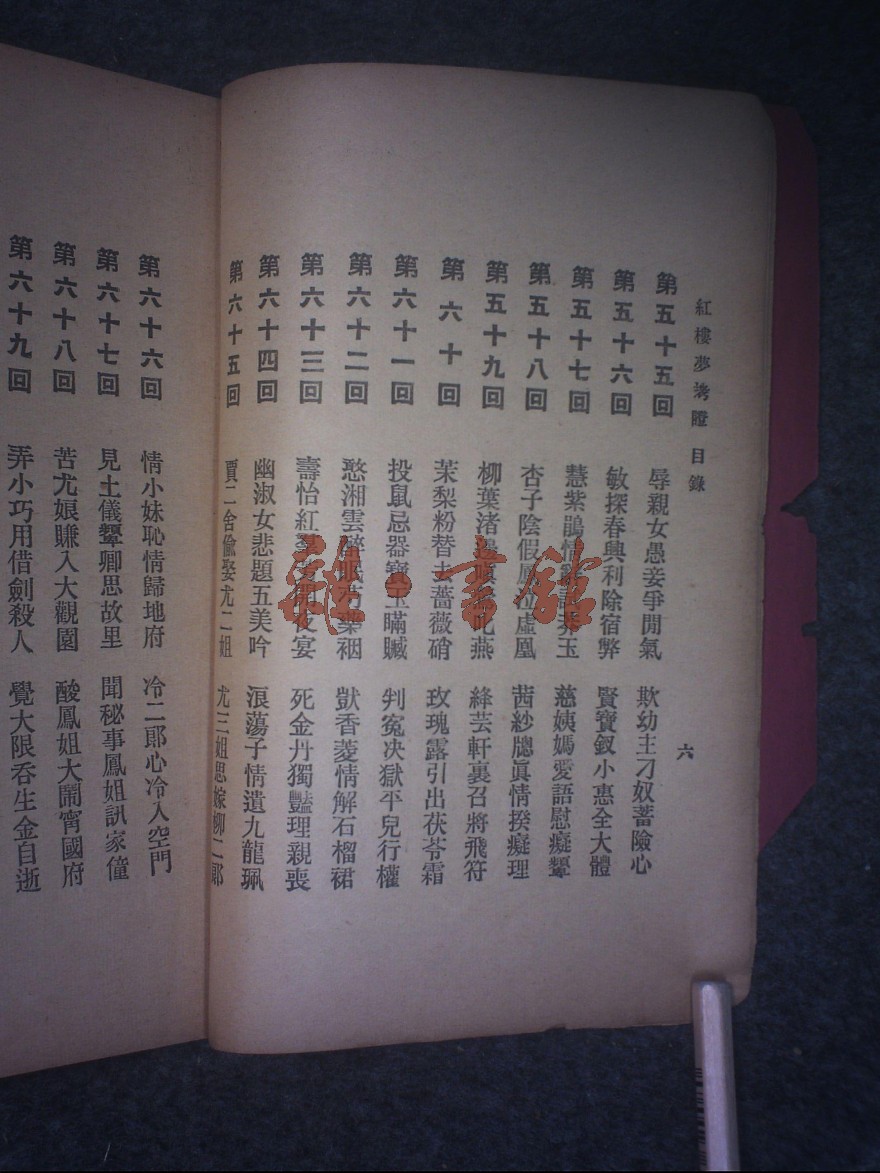 紅樓夢考證 目錄
第五十五回 辱親女愚妾爭閒氣 欺幼主刁奴蓄險心
第五十六回 敏探春興利除宿弊 賢寶釵小惠全大體
第五十七回 慧紫鵑情辭試莽玉 慈姨媽愛語慰癡顰
第五十八回 杏子陰假鳳泣虛凰 茜紗牕眞情揆癡理
第五十九回 柳葉渚邊嗔鶯叱燕 絳芸軒裏召將飛符
第六十回 茉梨粉替去薔薇硝 玫瑰露引出茯苓霜
第六十一回 投鼠忌器寶玉瞞贓 判寃决獄平兒行權
第六十二回 憨湘雲醉眠芍藥裀 獃香菱情解石榴裙
第六十三回 壽怡紅羣芳開夜宴 死金丹獨豔理親喪
第六十四回 幽淑女悲題五美吟 浪蕩子情遺九龍珮
第六十五回 賈二舍偷娶尤二姐 尤三姐思嫁柳二郞
六
第六十六回 情小妹恥情歸地府 冷二郞心冷入空門
第六十七回 見土儀顰卿思故里 聞秘事鳳姐訊家僮
第六十八回 苦尤娘賺入大觀園 酸鳳姐大鬧甯國府
第六十九回 弄小巧用借劍殺人 覺大限吞生金自逝
雜·書館